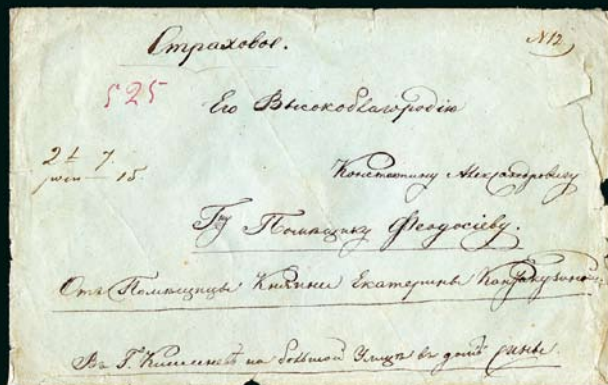 Страховое.
N12
525
Его Высокоблагородію
2 L 7.
15.
Константину Александровичу
Гну Помѣщику Ѳеодосіеву.
Отъ Помѣщицы Княгини Екатерины Кантакузиной
Въ Г. Кишиневѣ на большой Улицѣ въ домѣ